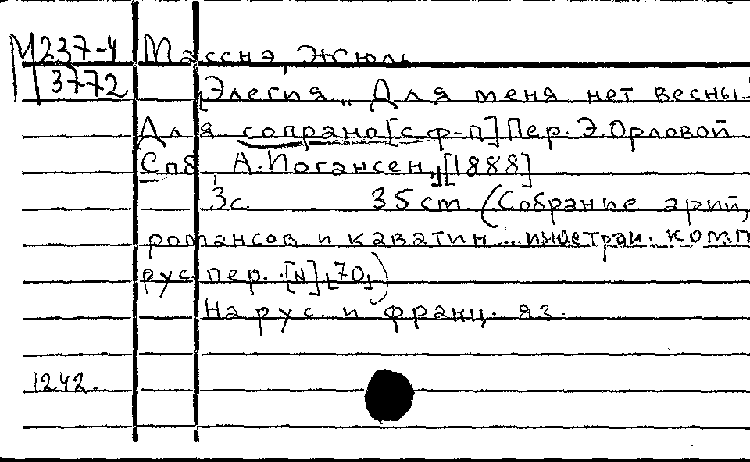 М 237-4 Массне, Жюль
3772 [Элегия „Для меня нет весны"
Для сопрано [с ф-п] Пер. Э. Орловой
Спб, А. Иогансен, [1888]
3с. 35 cm (Собрание арий,
романсов и каватин... иностран. комп
рус пер. [N] [70])
На рус и франц. яз.
1242.